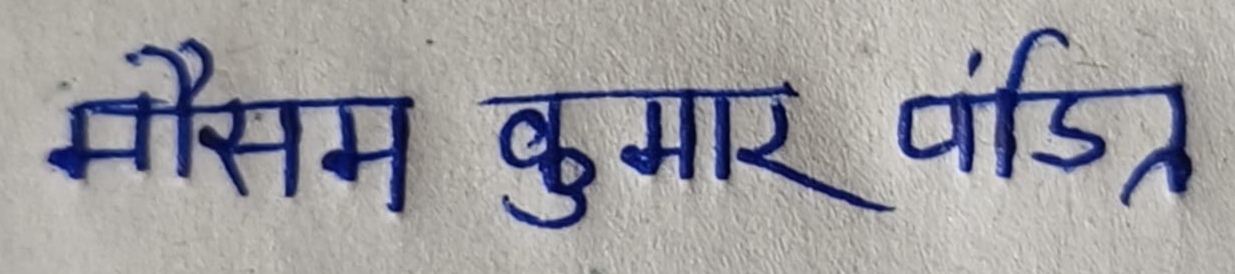 मौसम कुमार पंडित